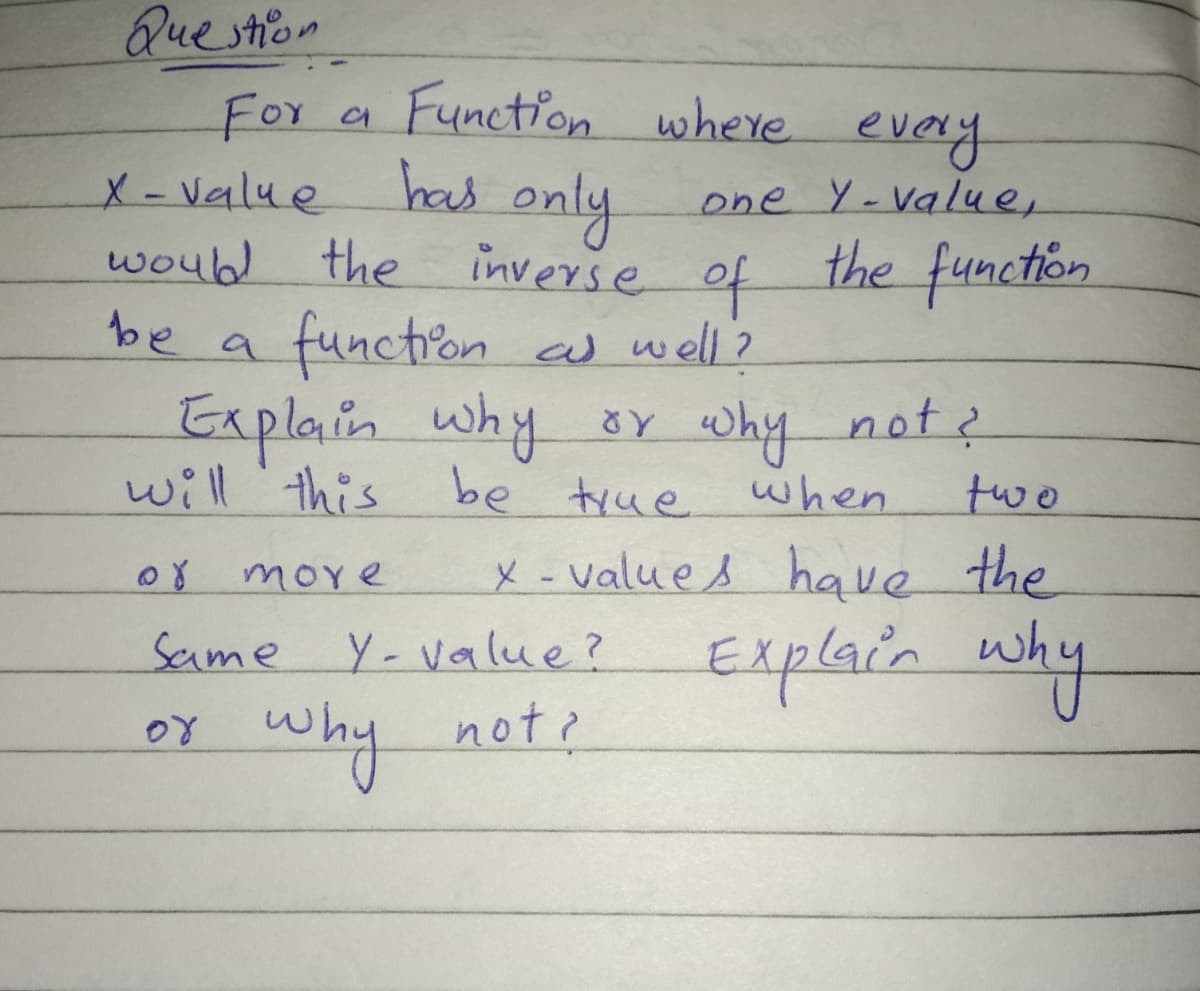 Question :-
For a Function where every
X - value has only one Y - value,
would the inverse of the function
be a function as well ?
Explain why or why not ?
will this be true when two
or more x - values have the
Same Y - value ? Explain why
or why not ?